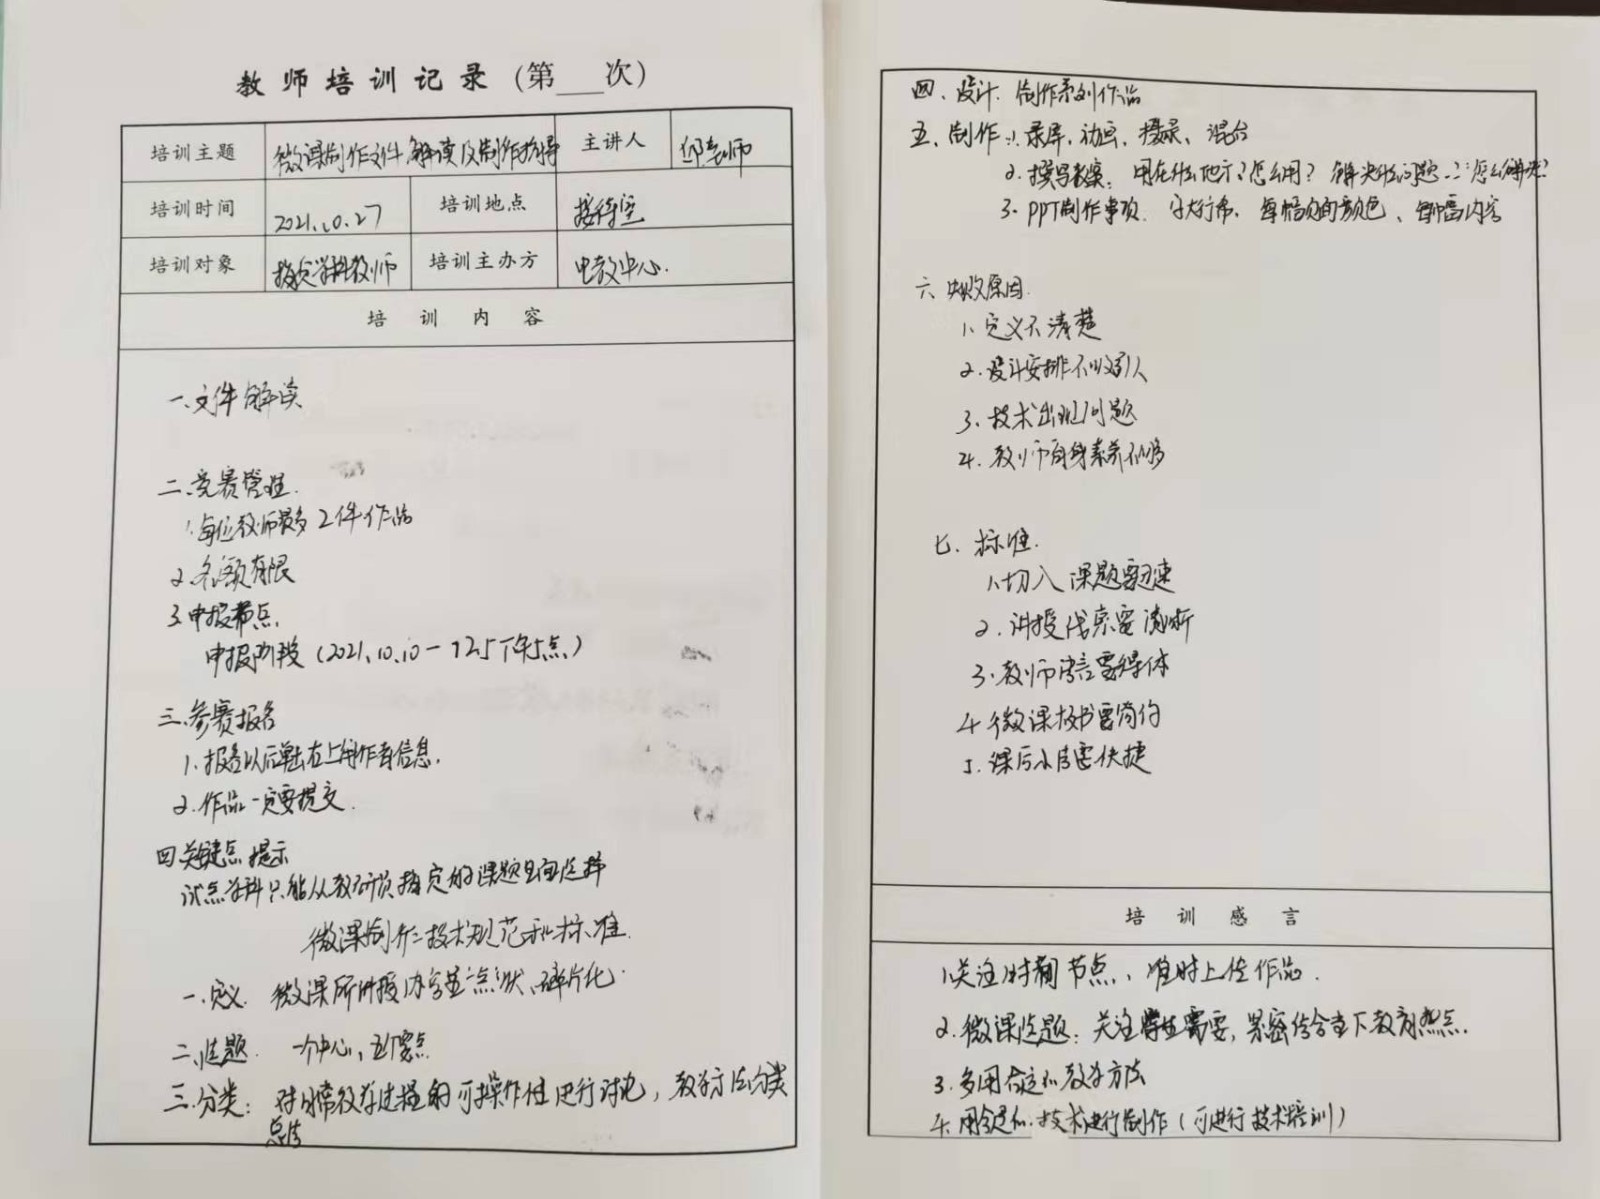 教师培训记录（第___次）
培训主题 微课制作文件解读及制作指导 主讲人 邱老师
培训时间 2021.10.27 培训地点 接待室
培训对象 指定学科教师 培训主办方 电教中心.
培训内容
一、文件解读
二、竞赛管理.
1.每位教师最多2件作品
2.名额有限
3.申报节点.
申报阶段（2021.10.10－12.5下午5点）
三、参赛报名
1.报名以后单击右上角作者信息.
2.作品一定要提交.
四、关键点提示
试点学科只能从教研员指定的课题里面选择
微课制作：技术规范和标准.
一、定义. 微课所讲授内容呈“点”状、碎片化.
二、选题. 一个中心，五个要点
三、分类：对日常教学过程的可操作性进行讨论，教学方法分类
总结
四、设计、制作系列作品
五、制作：1.录屏、动画、摄录、混合
2.撰写教案：用在什么地方？怎么用？解决什么问题？怎么解决？
3.PPT制作事项. 字大行稀. 每幅页面颜色、每幅内容
六、失败原因.
1.定义不清楚
2.设计安排不吸引人
3.技术出现问题
4.教师自身素养不够
七、标准.
1.切入课题要迅速
2.讲授线索要清晰
3.教师语言要得体
4.微课板书要简约
5.课后小结要快捷
培训感言
1.关注时间节点、准时上传作品.
2.微课选题：关注学生需要，紧密结合当下教育热点.
3.多用合适的教学方法
4.用合适的技术进行制作（可进行技术培训）